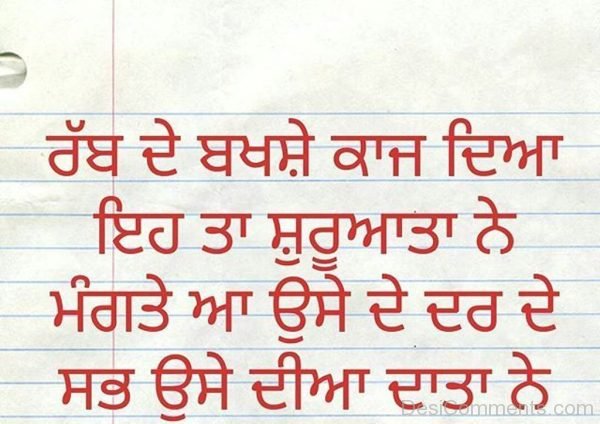 ਰੱਬ ਦੇ ਬਖਸ਼ੇ ਕਾਜ ਦਿਆ
ਇਹ ਤਾ ਸ਼ੁਰੂਆਤਾ ਨੇ
ਮੰਗਤੇ ਆ ਉਸੇ ਦੇ ਦਰ ਦੇ
ਸਭ ਉਸੇ ਦੀਆ ਦਾਤਾ ਨੇ
DesiComments.com